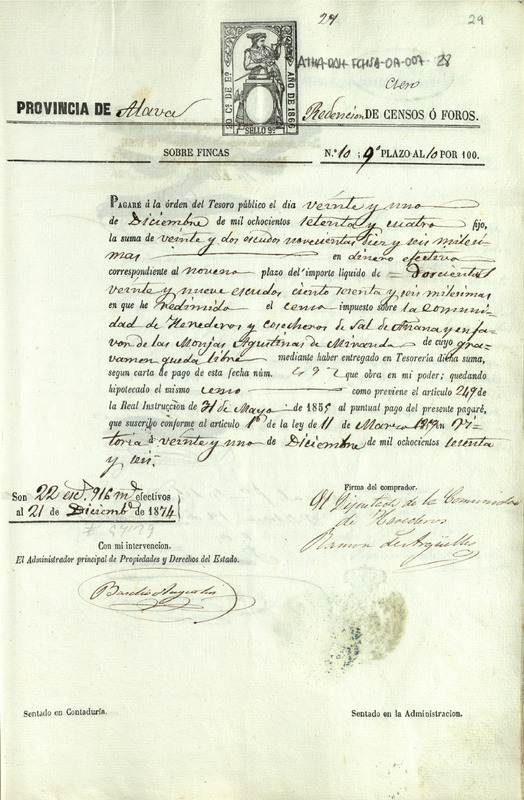 29
29
ATHA-DAH-FCHSA-OA-007-28
20 Cs DE Eo
AÑO DE 1866
SELLO 9º
Clero
PROVINCIA DE Alava
Redencion DE CENSOS Ó FOROS.
SOBRE FINCAS
N.º 10 ; 9º PLAZO AL 10 POR 100.
PAGARÉ á la órden del Tesoro público el dia veinte y uno
de Diciembre de mil ochocientos setenta y cuatro fijo,
la suma de veinte y dos escudos novecientas diez y seis milesi
mas en dinero efectivo
correspondiente al noveno plazo del importe líquido de = Doscientos
veinte y nueve escudos ciento sesenta y seis milesimas
en que he redimido el censo impuesto sobre la Comuni
dad de Herederos y cosecheros de Sal de Añana y en fa
vor de las Monjas Agustinas de Miranda de cuyo gra-
vamen queda libre mediante haber entregado en Tesorería dicha suma,
segun carta de pago de esta fecha núm. que obra en mi poder; quedando
hipotecado el mismo censo como previene el artículo 249 de
la Real Instruccion de 31 de Mayo de 1855 al puntual pago del presente pagaré,
que suscribo conforme al artículo 1º de la ley de 11 de Marzo 1859 en Vi
toria á veinte y uno de Diciembre de mil ochocientos sesenta
y seis.
Son 22 esc.s 916 ms efectivos
al 21 de Diciemb.e de 1874
Firma del comprador.
El Diputado de la Comunidad
de Herederos
Ramon de Argüello
Con mi intervencion.
El Administrador principal de Propiedades y Derechos del Estado.
Sentado en Contaduría.
Sentado en la Administracion.